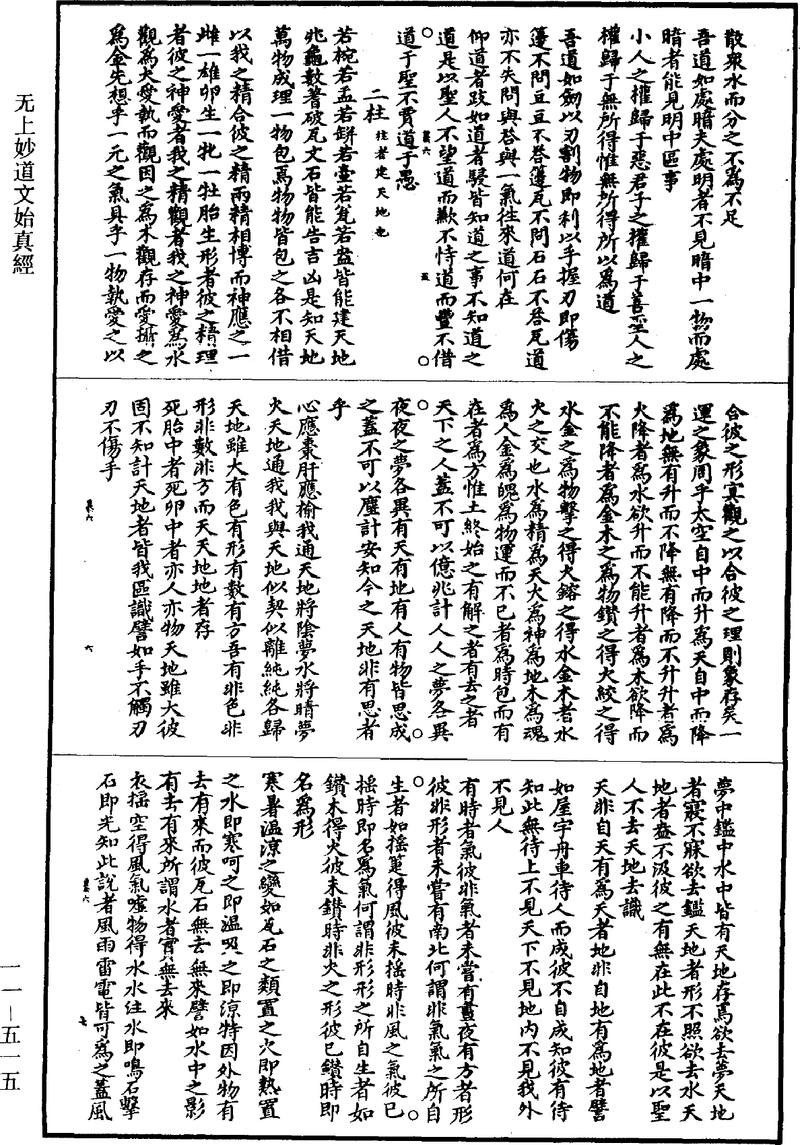 无上妙道文始真經
散衆水而分之不為不足
吾道如處暗夫處明者不見暗中一物而處
暗者能見明中區事
小人之權歸于惡君子之權歸于善聖人之
權歸于無所得惟無所得所以為道
吾道如劒以刃割物即利以手握刃即傷
籩不問豆豆不荅籩瓦不問石石不荅瓦道
亦不失問與荅與一氣往來道何在
仰道者跂如道者駸皆知道之事不知道之
道是以聖人不望道而歉不恃道而豐不借
道于聖不賈道于愚
二柱柱者建天地也
若椀若盂若缾若壷若瓮若盎皆能建天地
兆龜數蓍破瓦文石皆能告吉凶是知天地
萬物成理一物包焉物物皆包之各不相借
以我之精合彼之精兩精相摶而神應之一
雌一雄卵生一牝一牡胎生形者彼之精理
者彼之神愛者我之精觀者我之神愛為水
觀為火愛執而觀因之為木觀存而愛攝之
為金先想乎一元之氣具乎一物執愛之以
合彼之形冥觀之以合彼之理則象存矣一
運之象周乎太空自中而升為天自中而降
為地無有升而不降無有降而不升升者為
火降者為水欲升而不能升者為木欲降而
不能降者為金木之為物鑽之得火絞之得
水金之為物擊之得火鎔之得水金木者水
火之交也水為精為天火為神為地木為魂
為人金為魄為物運而不已者為時包而有
在者為方惟土終始之有解之者有去之者
天下之人蓋不可以億兆計人人之夢各異
夜夜之夢各異有天有地有人有物皆思成
之蓋不可以塵計安知今之天地非有思者
乎
心應棗肝應榆我通天地將陰夢水將晴夢
火天地通我我與天地似契似離純純各歸
天地雖大有色有形有數有方吾有非色非
形非數非方而天天地地者存
死胎中者死卵中者亦人亦物天地雖大彼
固不知計天地者皆我區識譬如手不觸刃
刃不傷手
夢中鑑中水中皆有天地存焉欲去夢天地
者寢不寐欲去鑑天地者形不照欲去水天
地者盎不汲彼之有無在此不在彼是以聖
人不去天地去識
天非自天有為天者地非自地有為地者譬
如屋宇舟車待人而成彼不自成知彼有待
知此無待上不見天下不見地內不見我外
不見人
有時者氣彼非氣者未嘗有晝夜有方者形
彼非形者未嘗有南北何謂非氣氣之所自
生者如搖箑得風彼未搖時非風之氣彼已
搖時即名為氣何謂非形形之所自生者如
鑽木得火彼未鑽時非火之形彼已鑽時即
名為形
寒暑溫涼之變如瓦石之類置之火即熱置
之水即寒呵之即溫吸之即涼特因外物有
去有來而彼瓦石無去無來譬如水中之影
有去有來所謂水者實無去來
衣搖空得風氣噓物得水水注水即鳴石擊
石即光知此說者風雨雷電皆可為之蓋風
一一－五一五